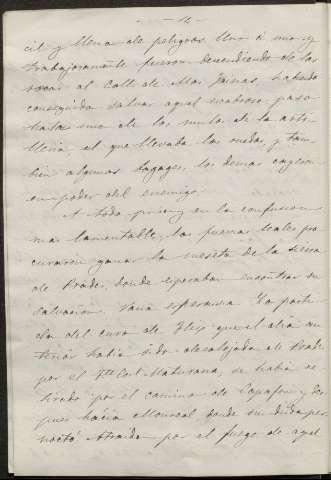 - 14 -
cil y llena de peligros. Uno á uno y
trabajosamente fueron descendiendo de las
rocas al Coll de Mas
conseguido salvar aquel escabroso paso
hasta uno de los mulos de la arti-
lleria el que llevaba las ruedas, y tam-
bien algunos bagages, los demas cayeron
en poder del enemigo.
A toda prisa y en la confusion
mas lamentable, las fuerzas leales pro
curaron ganar la meseta de la sierra
de Prades, donde esperaban encontrar su
salvacion. Vana esperanza. La parti
da del cura de Flix que el dia an
terior habia sido desalojada de Prades
por el Tte Cnel Maturana, se habia re
tirado por el camino de Capafons y des
pues hácia Monreal donde sin duda per
noctó. Atraida por el fuego de aquel